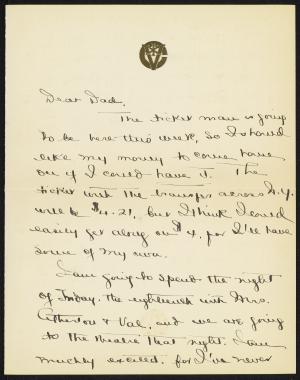 Dear Dad,
The ticket man is going
to be here this week, so I should
like my money to come home
on if I could have it. The
ticket with the transfer across N.Y.
will be $4.21, but I think I could
easily get along on $4. for I'll have
some of my own.
I am going to spend the night
of Friday, the eighteenth with Mrs.
Atherton & Val, and we are going
to the theatre that night. I am
muchly excited, for I've never